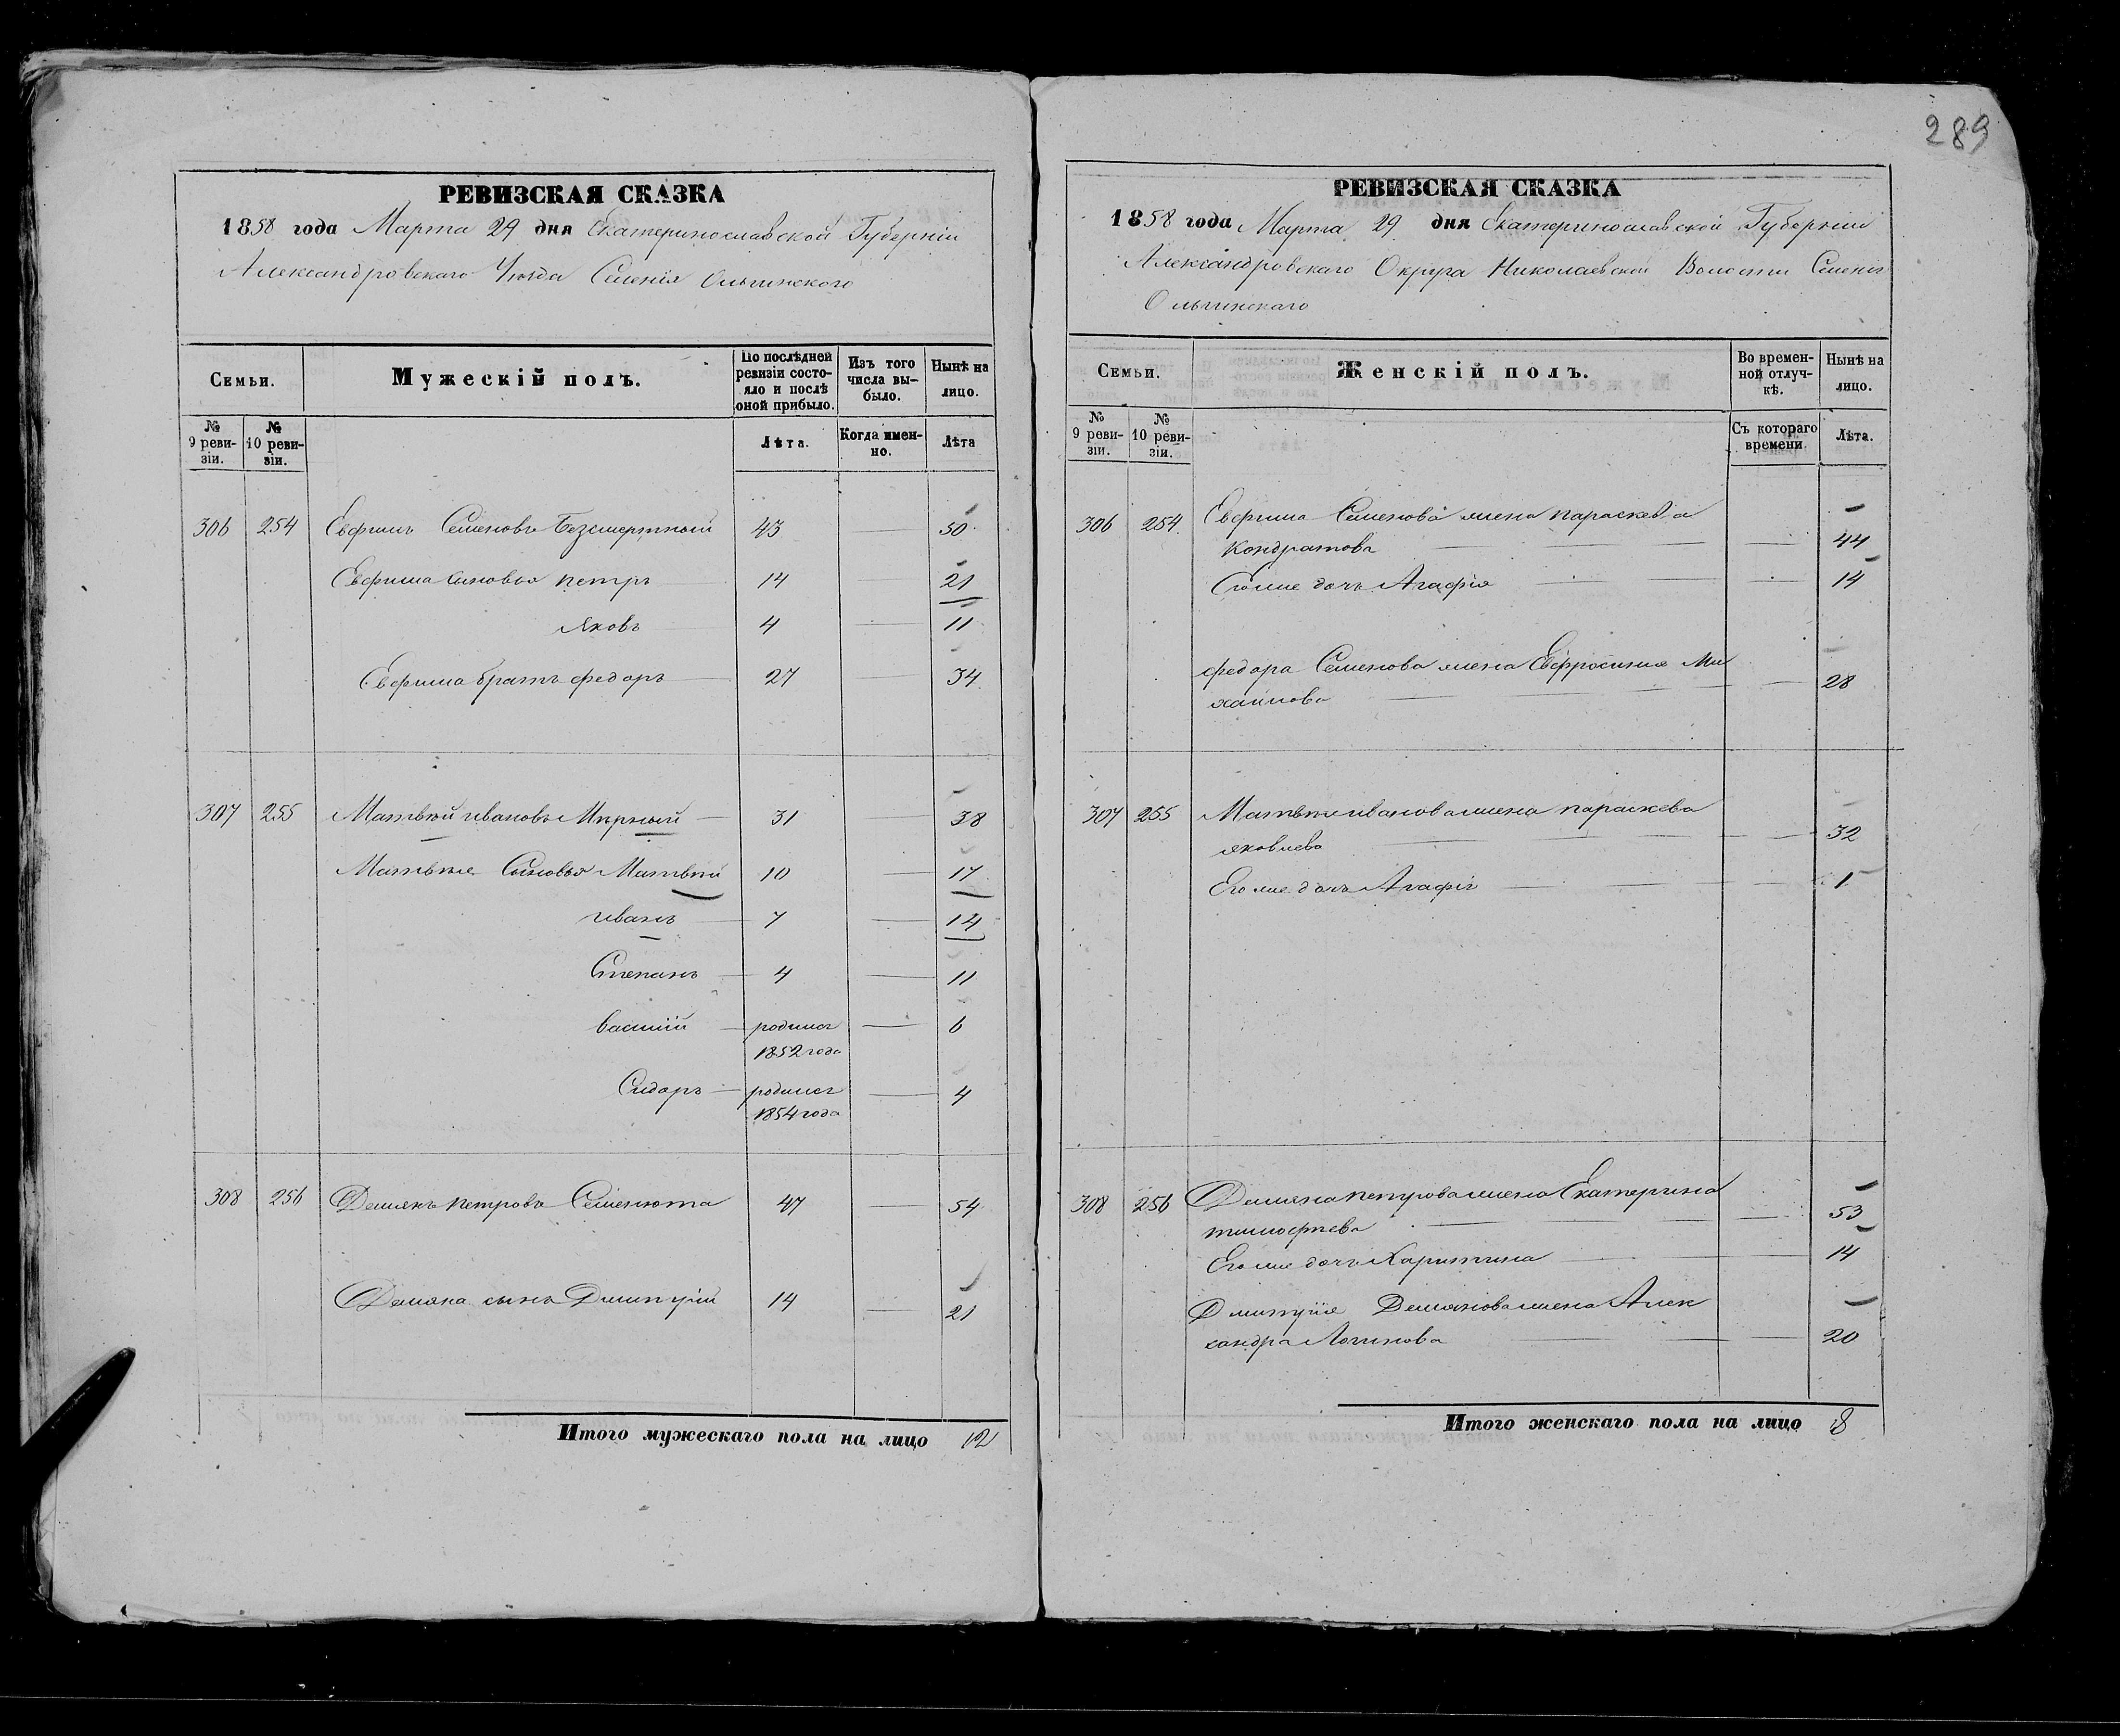 289
РЕВИЗСКАЯ СКАЗКА
1858 года Марта 29 дня Екатеринославской Губерніи
Александровскаго Уѣзда Селенія Ольгинского
Семьи.
Мужескій полъ.
По послѣдней ревизіи состояло и послѣ оной прибыло.
Изъ того числа выбыло.
Нынѣ на лицо.
№ 9 ревизіи.
№ 10 ревизіи.
Лѣта.
Когда именно.
Лѣта
306 254 Евфимъ Семеновъ Безсмертный 43 — 50
Евфима сыновья петръ 14 — 21
Яковъ 4 — 11
Евфима братъ федоръ 27 34
307 255 Матвѣй ивановъ Мирный — 31 — 38
Матвѣя Сыновья Матвѣй 10 — 17
иванъ — 7 — 14
Степанъ — 4 — 11
василій — родился 1852 года — 6
Сидоръ — родился 1854 года — 4
308 256 Демянъ петровъ Семенюта 47 — 54
Демяна сынъ Дмитрій 14 — 21
Итого мужескаго пола на лицо 12
РЕВИЗСКАЯ СКАЗКА
1858 года Марта 29 дня Екатеринославской Губерніи
Александровскаго Округа Николаевской Волости Селенія
Ольгинскаго
Семьи.
Женскій полъ.
Во временной отлучкѣ.
Нынѣ на лицо.
№ 9 ревизіи.
№ 10 ревизіи.
Съ котораго времени
Лѣта.
306 254 Евфима Семенова жена параскева
Кондратова — 44
Егоже дочь Агафія — 14
федора Семенова жена Евфросинія Ми
хайлова — 28
307 255 Матвѣя иванова жена параскева
яковлева — 32
Егоже дочь Агафія — 1
308 256 Демяна петрова жена Екатерина
тимофѣева — 53
Егоже дочь Харитина — 14
Дмитрія Демянова жена Алек
сандра Логинова — 20
Итого женскаго пола на лицо 8